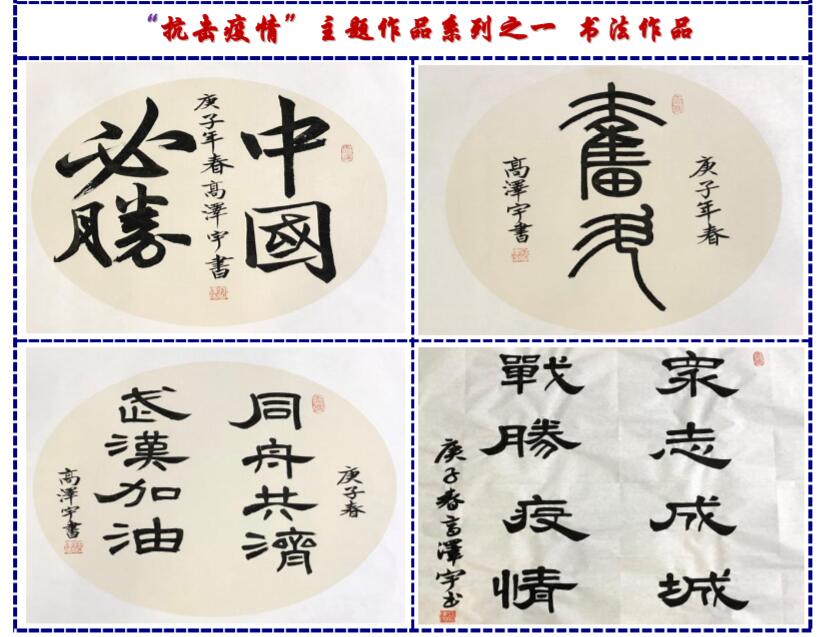 “抗击疫情”主题作品系列之一 书法作品
中國
必勝
庚子年春高澤宇書
奮飛
庚子年春
高澤宇書
同舟共濟
武漢加油
庚子春
高澤宇書
衆志成城
戰勝疫情
庚子春高澤宇书